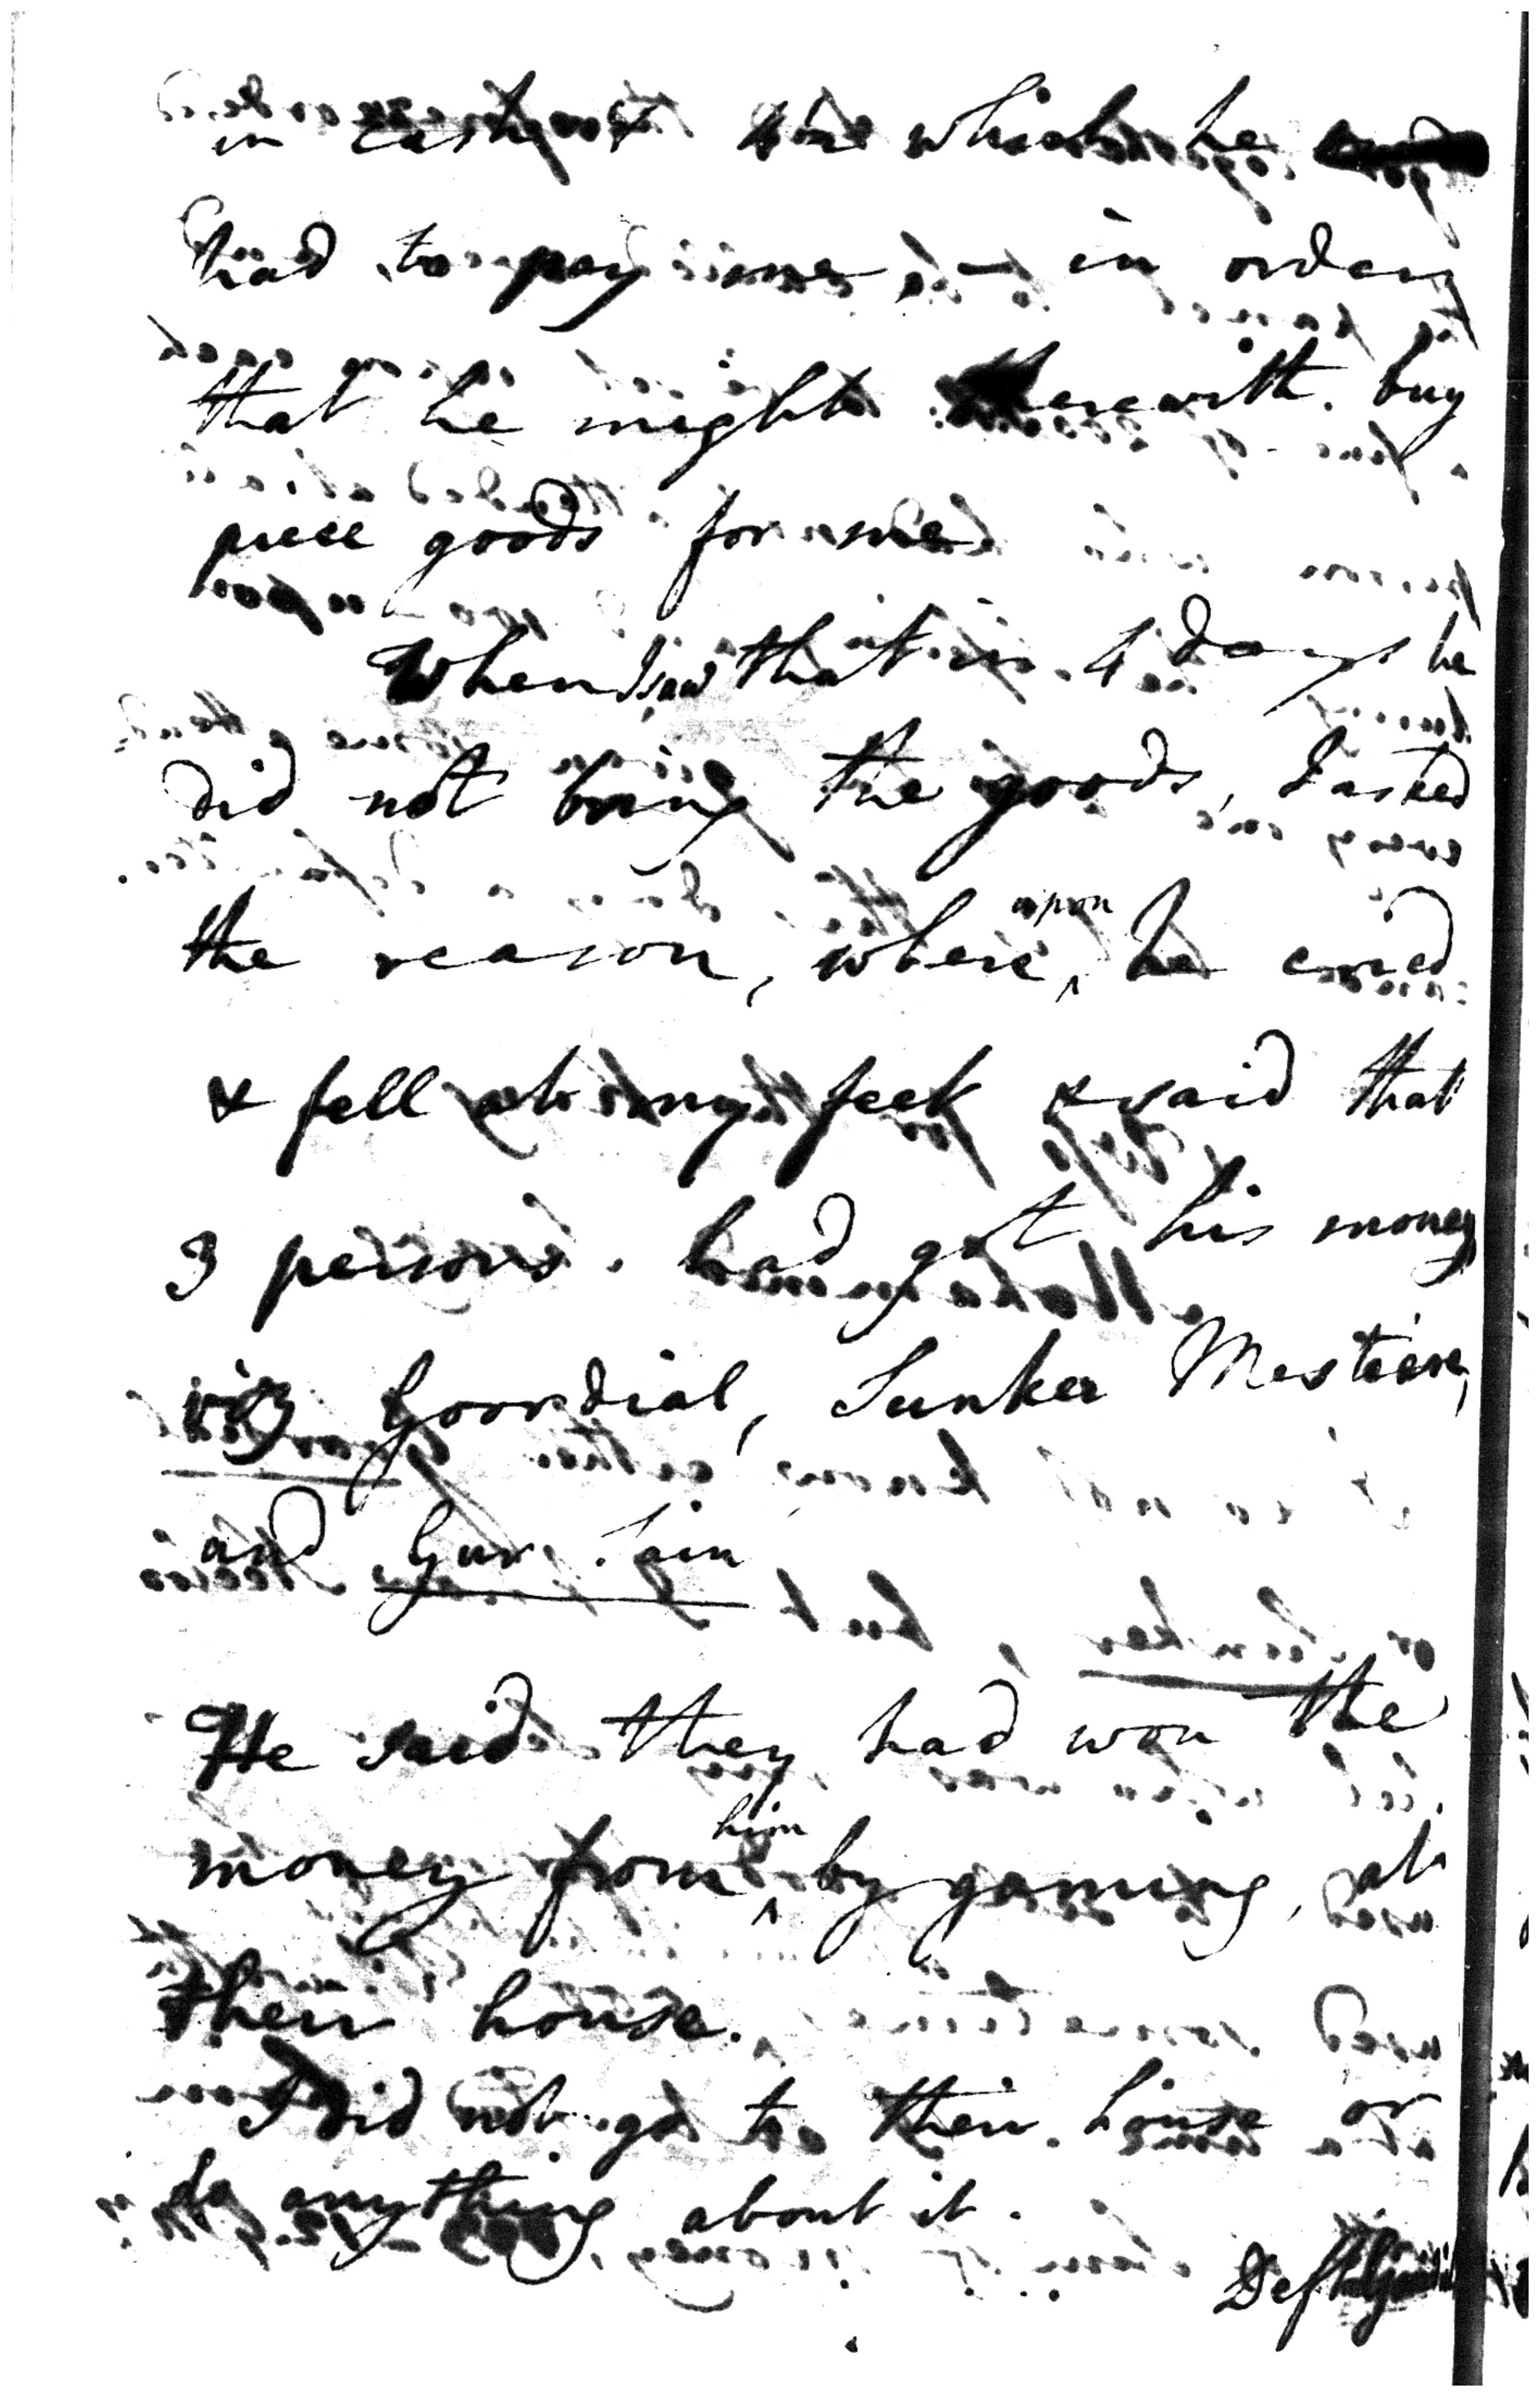 in cash, & which he
had to pay me, in order
that he might therewith buy
piece goods for me
When I saw that in 4 days he
did not bring the goods, I asked
the reason, whereupon he cried
& fell at my feet & said that
3 persons had got his money
viz Goordial, Sunker Mestree,
and Gur Sain
He said they had won the
money from him by gaming, at
their house.
I did not go to their house or
do anything about it.
Deft